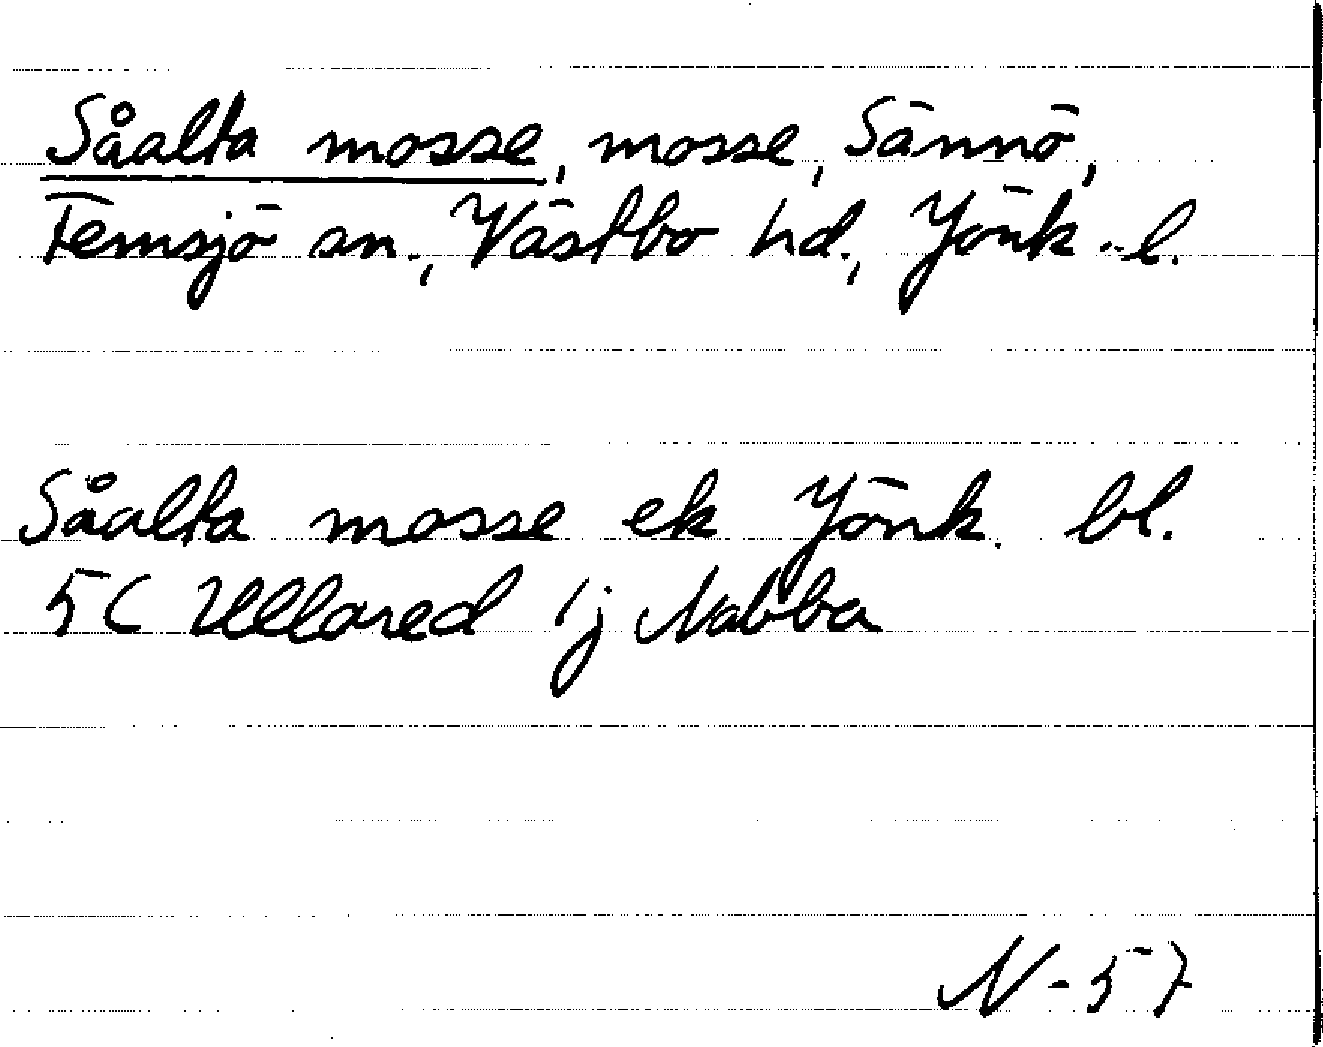 Såalta mosse, mosse, Sännö,
Femsjö sn., Västbo hd., Jönk. l.
Såalta mosse ek Jönk. bl.
5C Ullared 1j Nabba
N-57